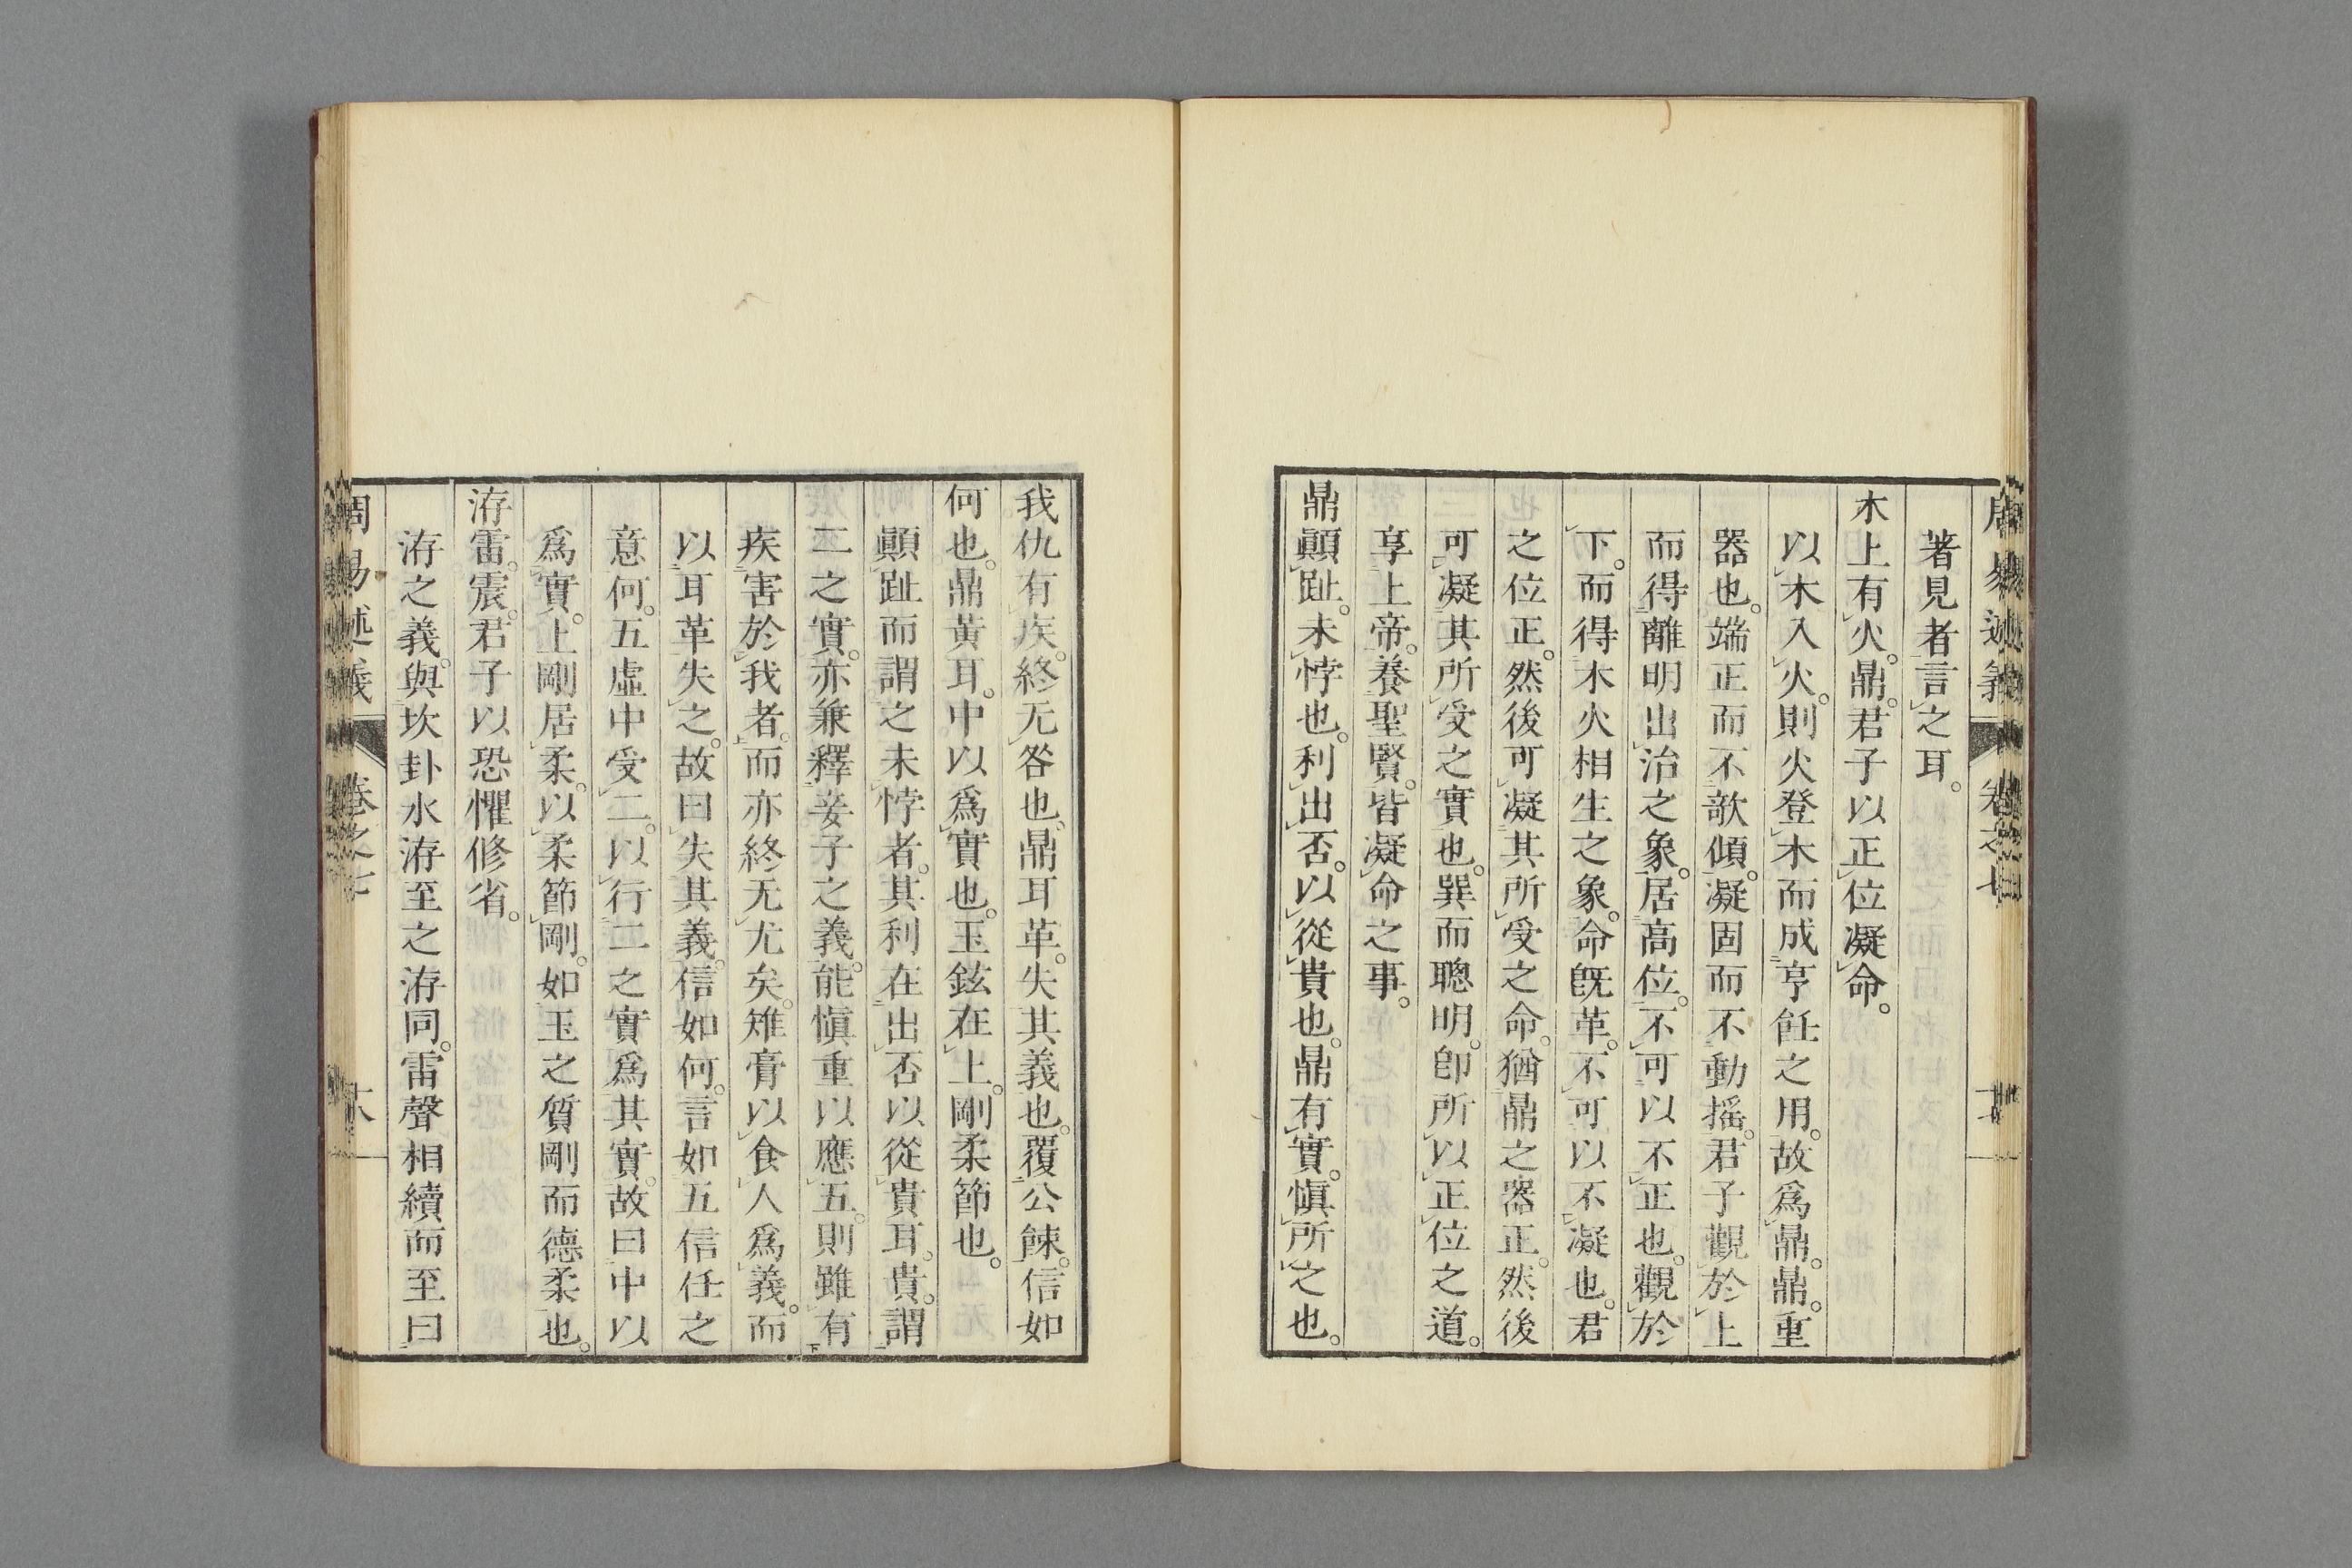 著見者言之耳。
木上有火。鼎。君子以正位凝命。
以木入火。則火登木而成亨飪之用。故爲鼎。鼎。重
器也。端正而不欹傾。凝固而不動搖。君子觀於上
而得離明出治之象。居高位。不可以不正也。觀於
下。而得木火相生之象。命旣革。不可以不凝也。君
之位正。然後可凝其所受之命。猶鼎之器正。然後
可凝其所受之實也。巽而聰明。卽所以正位之道。
享上帝。養聖賢。皆凝命之事。
鼎顚趾。未悖也。利出否。以從貴也。鼎有實。愼所之也。
我仇有疾。終无咎也。鼎耳革。失其義也。覆公餗。信如
何也。鼎黃耳。中以爲實也。玉鉉在上。剛柔節也。
顚趾而謂之未悖者。其利在出否以從貴耳。貴。謂
二之實。亦兼釋妾子之義。能愼重以應五。則雖有
疾害於我者。而亦終无尤矣。雉膏以食人爲義。而
以耳革失之。故曰失其義。信如何。言如五信任之
意何。五虛中受二。以行二之實爲其實。故曰中以
爲實。上剛居柔。以柔節剛。如玉之質剛而德柔也。
洊雷。震。君子以恐懼修省。
洊之義。與坎卦水洊至之洊同。雷聲相續而至曰
周易述義 卷之七